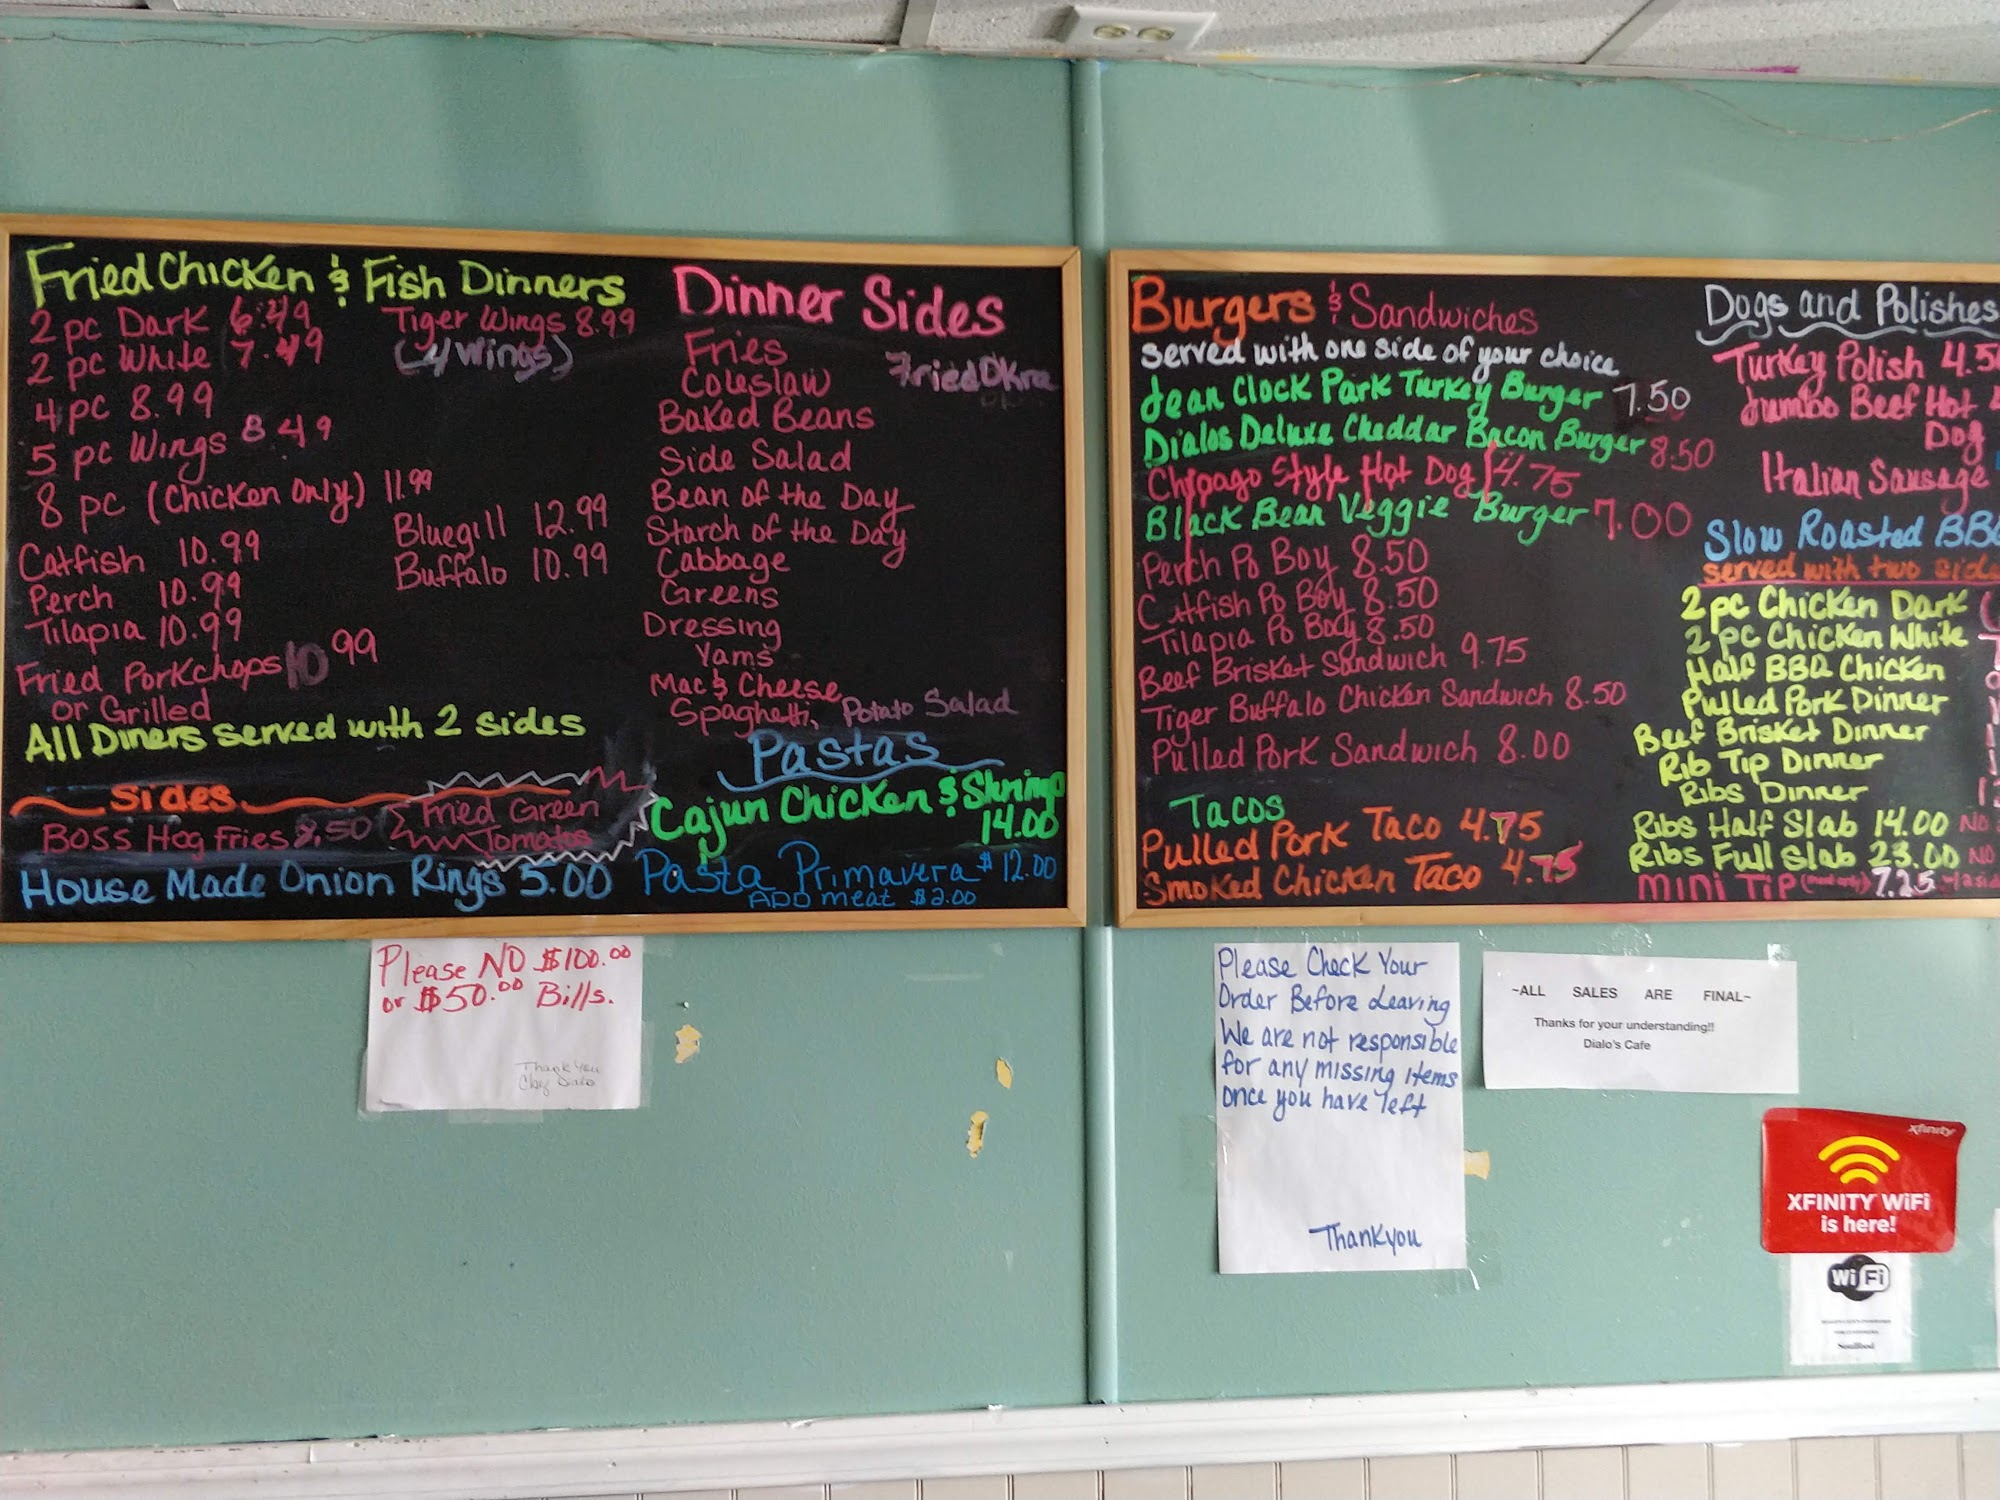 Fried Chicken & Fish Dinners
2 pc Dark 6.49
2 pc White 7.49
4 pc 8.99
5 pc Wings 8 49
8 pc (Chicken Only) 11.99
Tiger Wings 8.99
(4 Wings)
Bluegill 12.99
Buffalo 10.99
Catfish 10.99
Perch 10.99
Tilapia 10.99
Fried Porkchops 10 99
or Grilled
All Diners served with 2 sides
Sides
Boss Hog Fries 8.50
Fried Green
Tomatos
House Made Onion Rings 5.00
Dinner Sides
Fries
Coleslaw
Fried Okra
Baked Beans
Side Salad
Bean of the Day
Starch of the Day
Cabbage
Greens
Dressing
Yams
Mac & Cheese
Spaghetti, Potato Salad
Pastas
Cajun Chicken & Shrimp
14.00
Pasta Primavera $12.00
ADD meat $2.00
Burgers & Sandwiches
served with one side of your choice
Jean Clock Park Turkey Burger 7.50
Dialos Deluxe Cheddar Bacon Burger 8.50
Chipago Style Hot Dog 4.75
Black Bean Veggie Burger 7.00
Perch Po Boy 8.50
Catfish Po Boy 8.50
Tilapia Po Boy 8.50
Beef Brisket Sandwich 9.75
Tiger Buffalo Chicken Sandwich 8.50
Pulled Pork Sandwich 8.00
Tacos
Pulled Pork Taco 4.75
Smoked Chicken Taco 4.75
Dogs and Polishes
Turkey Polish 4.5
Jumbo Beef Hot
Dog
Italian Sausage
Slow Roasted BB
served with two side
2 pc Chicken Dark
2 pc Chicken White
Half BBQ Chicken
Pulled Pork Dinner
Beef Brisket Dinner
Rib Tip Dinner
Ribs Dinner
Ribs Half Slab 14.00 NO
Ribs Full Slab 23.00 NO
Mini Tip (meat only) 7.25
Please NO $100.00
or $50.00 Bills.
Thank You
Chef Dialo
Please Check Your
Order Before Leaving
We are not responsible
for any missing items
once you have left
Thankyou
~ALL SALES ARE FINAL~
Thanks for your understanding!!
Dialo's Cafe
xfinity
XFINITY WiFi
is here!
Wi Fi
Soulfood